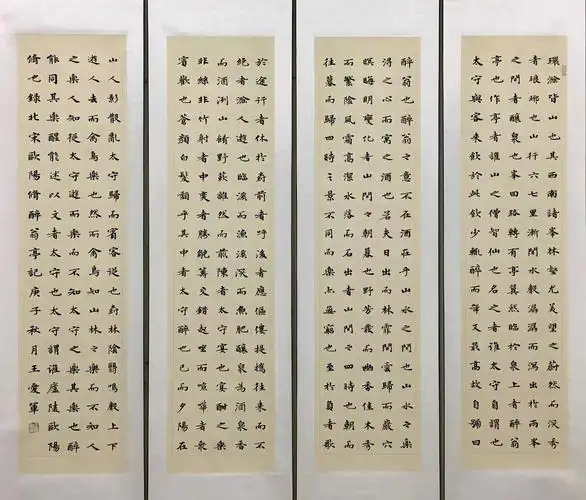 環滁皆山也其西南諸峰林壑尤美望之蔚然而深秀
者琅琊也山行六七里漸聞水聲潺潺而瀉出於兩峯
之間者釀泉也峯回路轉有亭翼然臨於泉上者醉翁
亭也作亭者誰山之僧智仙也名之者誰太守自謂也
太守與客來飲於此飲少輒醉而年又最高故自號曰
醉翁也醉翁之意不在酒在乎山水之間也山水之樂
得之心而寓之酒也若夫日出而林霏開雲歸而巖穴
暝晦明變化者山間之朝暮也野芳發而幽香佳木秀
而繁陰風霜高潔水落而石出者山間之四時也朝而
往暮而歸四時之景不同而樂亦無窮也至於負者歌
於途行者休於樹前者呼後者應傴僂提攜往來而不
絕者滁人遊也臨溪而漁溪深而魚肥釀泉為酒泉香
而酒洌山餚野蔌雜然而前陳者太守宴也宴酣之樂
非絲非竹射者中奕者勝觥籌交錯起坐而諠譁者衆
賓歡也蒼顏白髮頹乎其中者太守醉也已而夕陽在
山人影散亂太守歸而賓客從也樹林陰翳鳴聲上下
遊人去而禽鳥樂也然而禽鳥知山林之樂而不知人
之樂人知從太守遊而樂而不知太守之樂其樂也醉
能同其樂醒能述以文者太守也太守謂誰廬陵歐陽
脩也錄北宋歐陽脩醉翁亭記庚子秋月王愛軍